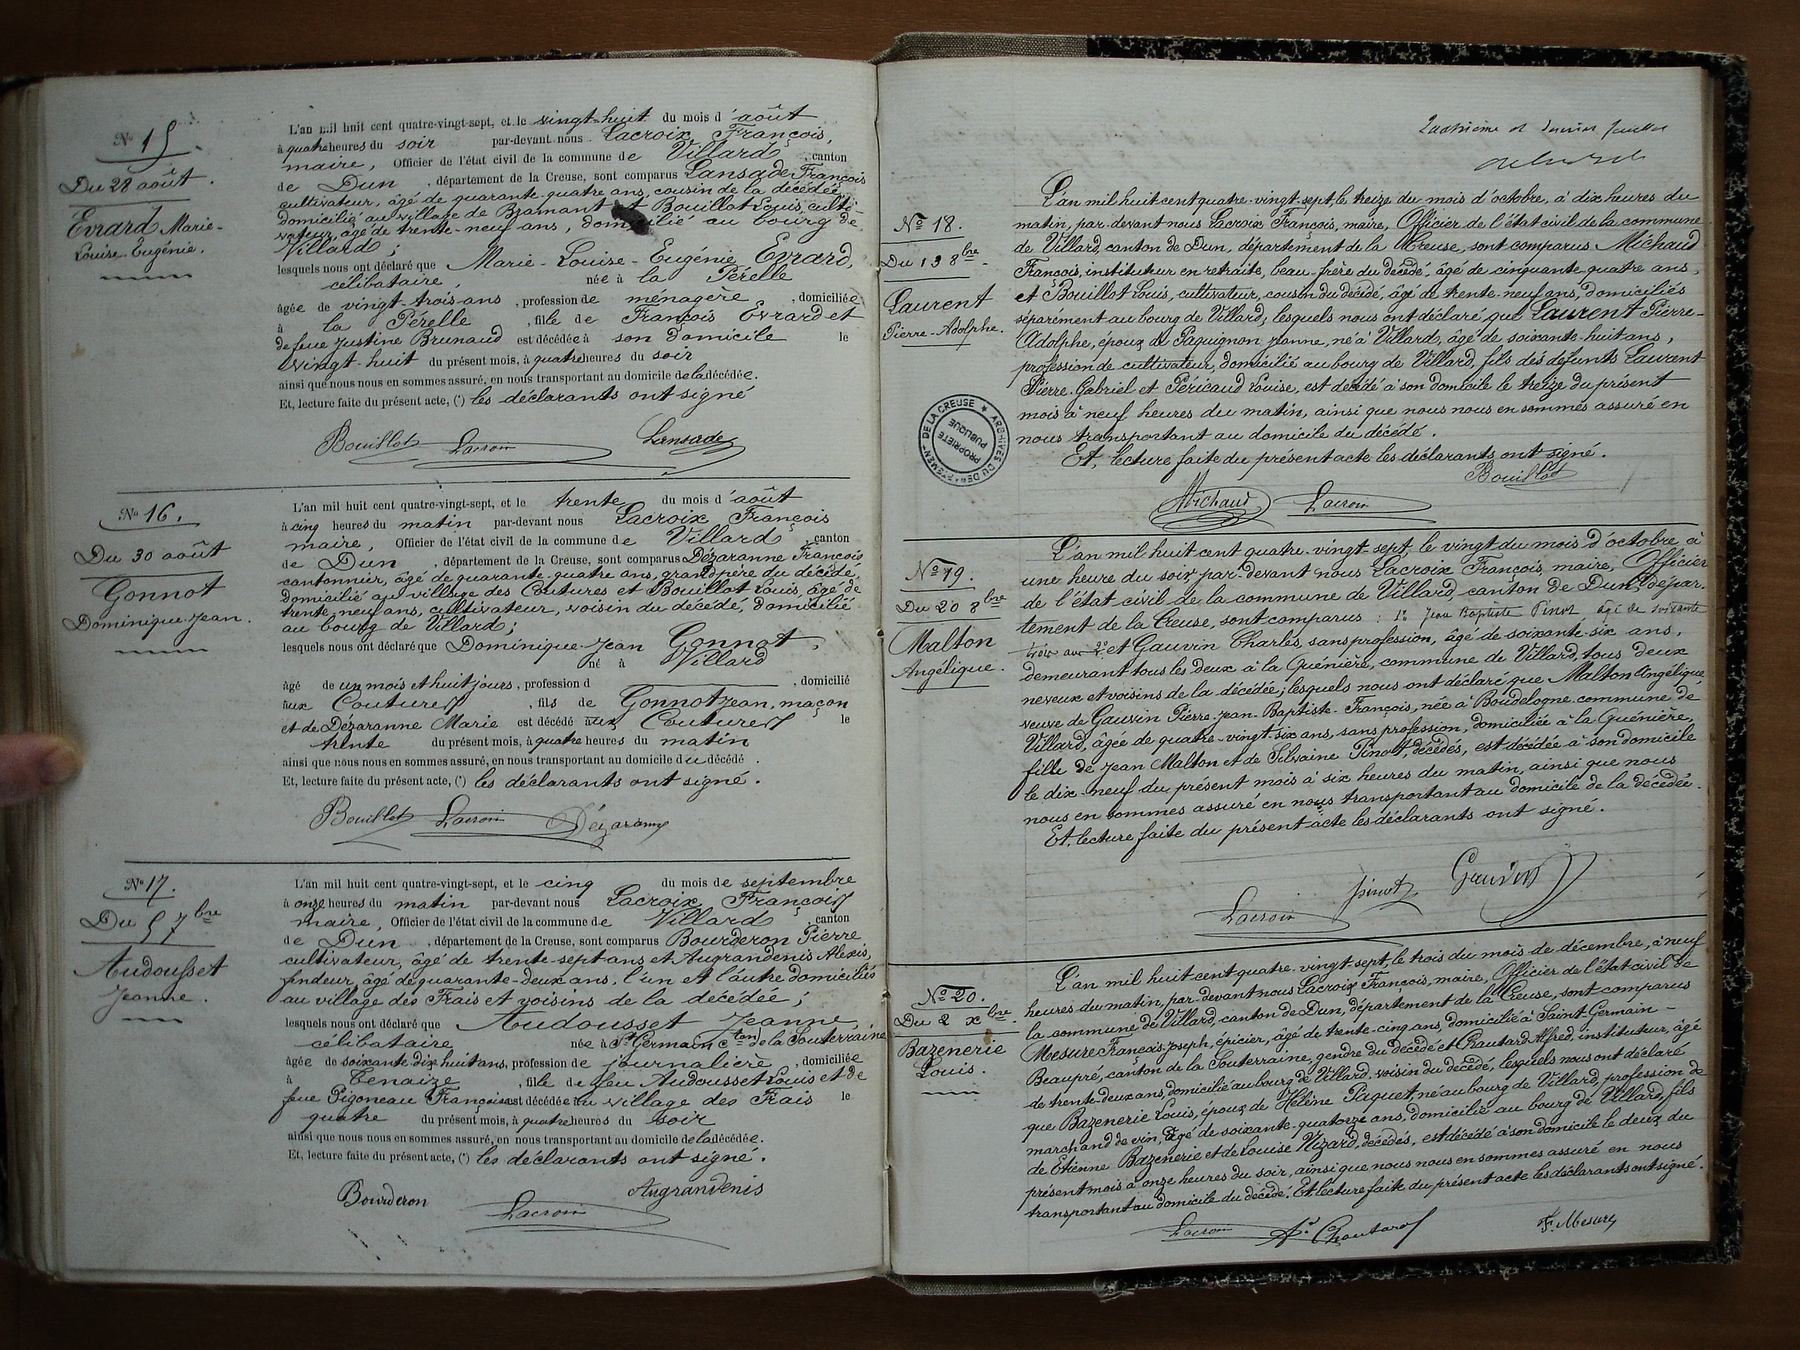 N° 15
Du 28 août.
Evrard Marie-
Louise-Eugénie.
L'an mil huit cent quatre-vingt-sept, et le vingt-huit du mois d'août
à quatre heures du soir par-devant nous Lacroix François,
maire, Officier de l'état civil de la commune de Villard, canton
de Dun, département de la Creuse, sont comparus Lansade François
cultivateur, âgé de quarante-quatre ans, cousin de la décédée,
domicilié au village de Bramant et Bouillot Louis, culti-
vateur, âgé de trente-neuf ans, domicilié au bourg de
Villard;
lesquels nous ont déclaré que Marie-Louise-Eugénie Evrard,
célibataire, née à la Pérelle
âgée de vingt-trois ans, profession de ménagère, domiciliée
à la Pérelle, fille de François Evrard et
de feue Justine Brunaud est décédée à son domicile le
vingt-huit du présent mois, à quatre heures du soir
ainsi que nous nous en sommes assuré, en nous transportant au domicile de la décédée.
Et, lecture faite du présent acte, (*) les déclarants ont signé
Bouillot Lacroix Lansade
N° 16.
Du 30 août
Gonnot
Dominique-Jean.
L'an mil huit cent quatre-vingt-sept, et le trente du mois d'août
à cinq heures du matin par-devant nous Lacroix François
maire, Officier de l'état civil de la commune de Villard, canton
de Dun, département de la Creuse, sont comparus Dézaranne François
cantonnier, âgé de quarante-quatre ans, grand père du décédé,
domicilié au village des Coutures et Bouillot Louis, âgé de
trente-neuf ans, cultivateur, voisin du décédé, domicilié
au bourg de Villard;
lesquels nous ont déclaré que Dominique-Jean Gonnot,
né à Villard
âgé de un mois et huit jours, profession d , domicilié
aux Coutures, fils de Gonnot Jean, maçon
et de Dézaranne Marie est décédé aux Coutures le
trente du présent mois, à quatre heures du matin
ainsi que nous nous en sommes assuré, en nous transportant au domicile du décédé.
Et, lecture faite du présent acte, (*) les déclarants ont signé.
Bouillot Lacroix Dézaranne
N° 17.
Du 5 7bre
Audousset
Jeanne.
L'an mil huit cent quatre-vingt-sept, et le cinq du mois de septembre
à onze heures du matin par-devant nous Lacroix François
maire, Officier de l'état civil de la commune de Villard, canton
de Dun, département de la Creuse, sont comparus Bourderon Pierre
cultivateur, âgé de trente-sept ans et Augrandenis Alexis,
fendeur, âgé de quarante-deux ans, l'un et l'autre domiciliés
au village des Frais et voisins de la décédée;
lesquels nous ont déclaré que Audousset Jeanne,
célibataire née à St Germain Cton de la Souterraine
âgée de soixante dix huit ans, profession de journalière, domiciliée
à Tenaize, fille de feu Audousset Louis et de
feue Pigoneau Françoise est décédée au village des Frais le
quatre du présent mois, à quatre heures du soir
ainsi que nous nous en sommes assuré, en nous transportant au domicile de la décédée.
Et, lecture faite du présent acte, (*) les déclarants ont signé.
Bourderon Lacroix Augrandenis
Quatrième et dernier feuillet
N° 18.
Du 13 8bre
Laurent
Pierre-Adolphe.
L'an mil huit cent quatre-vingt-sept, le treize du mois d'octobre, à dix heures du
matin, par-devant nous Lacroix François, maire, Officier de l'état civil de la commune
de Villard, canton de Dun, département de la Creuse, sont comparus Michaud
François, instituteur en retraite, beau-frère du décédé, âgé de cinquante-quatre ans,
et Bouillot Louis, cultivateur, cousin du décédé, âgé de trente-neuf ans, domiciliés
séparément au bourg de Villard; lesquels nous ont déclaré que Laurent Pierre-
Adolphe, époux de Paquignon Jeanne, né à Villard, âgé de soixante-huit ans,
profession de cultivateur, domicilié au bourg de Villard, fils des défunts Laurent
Pierre-Gabriel et Pericaud Louise, est décédé à son domicile le treize du présent
mois à neuf heures du matin, ainsi que nous nous en sommes assuré en
nous transportant au domicile du décédé.
Et, lecture faite du présent acte les déclarants ont signé.
Bouillot
Michaud Lacroix
ARCHIVES DU DEPARTEMENT DE LA CREUSE
PROPRIETE
PUBLIQUE
N° 19.
Du 20 8bre
Malton
Angélique.
L'an mil huit cent quatre-vingt-sept, le vingt du mois d'octobre à
une heure du soir, par-devant nous Lacroix François, maire, Officier
de l'état civil de la commune de Villard, canton de Dun, dépar-
tement de la Creuse, sont comparus : 1° Jean Baptiste Pinot âgé de soixante
trois ans 2° et Gauvin Charles, sans profession, âgé de soixante-six ans,
demeurant tous les deux à la Guénière, commune de Villard, tous deux
neveux et voisins de la décédée; lesquels nous ont déclaré que Malton Angélique,
veuve de Gauvin Pierre-Jean-Baptiste-François, née à Boudelogne commune de
Villard, âgée de quatre-vingt-six ans, sans profession, domiciliée à la Guénière,
fille de Jean Malton et de Silvaine Pinot, décédés, est décédée à son domicile
le dix-neuf du présent mois à six heures du matin, ainsi que nous
nous en sommes assuré en nous transportant au domicile de la décédée.
Et, lecture faite du présent acte les déclarants ont signé.
Lacroix Pinot Gauvin
N° 20.
Du 2 xbre
Bazenerie
Louis.
L'an mil huit cent quatre-vingt-sept, le trois du mois de décembre, à neuf
heures du matin, par-devant nous Lacroix François, maire, Officier de l'état civil de
la commune de Villard, canton de Dun, département de la Creuse, sont comparus
Mesure François-Joseph, épicier, âgé de trente-cinq ans, domicilié à Saint-Germain-
Beaupré, canton de la Souterraine, gendre du décédé et Chautard Alfred, instituteur, âgé
de trente-deux ans, domicilié au bourg de Villard, voisin du décédé, lesquels nous ont déclaré
que Bazenerie Louis, époux de Hélène Paquet, né au bourg de Villard, profession de
marchand de vin, âgé de soixante-quatorze ans, domicilié au bourg de Villard, fils
de Etienne Bazenerie et de Louise Vizard, décédés, est décédé à son domicile le deux du
présent mois à onze heures du soir, ainsi que nous nous en sommes assuré en nous
transportant au domicile du décédé. Et, lecture faite du présent acte les déclarants ont signé.
Lacroix Ad Chautard F. Mesure